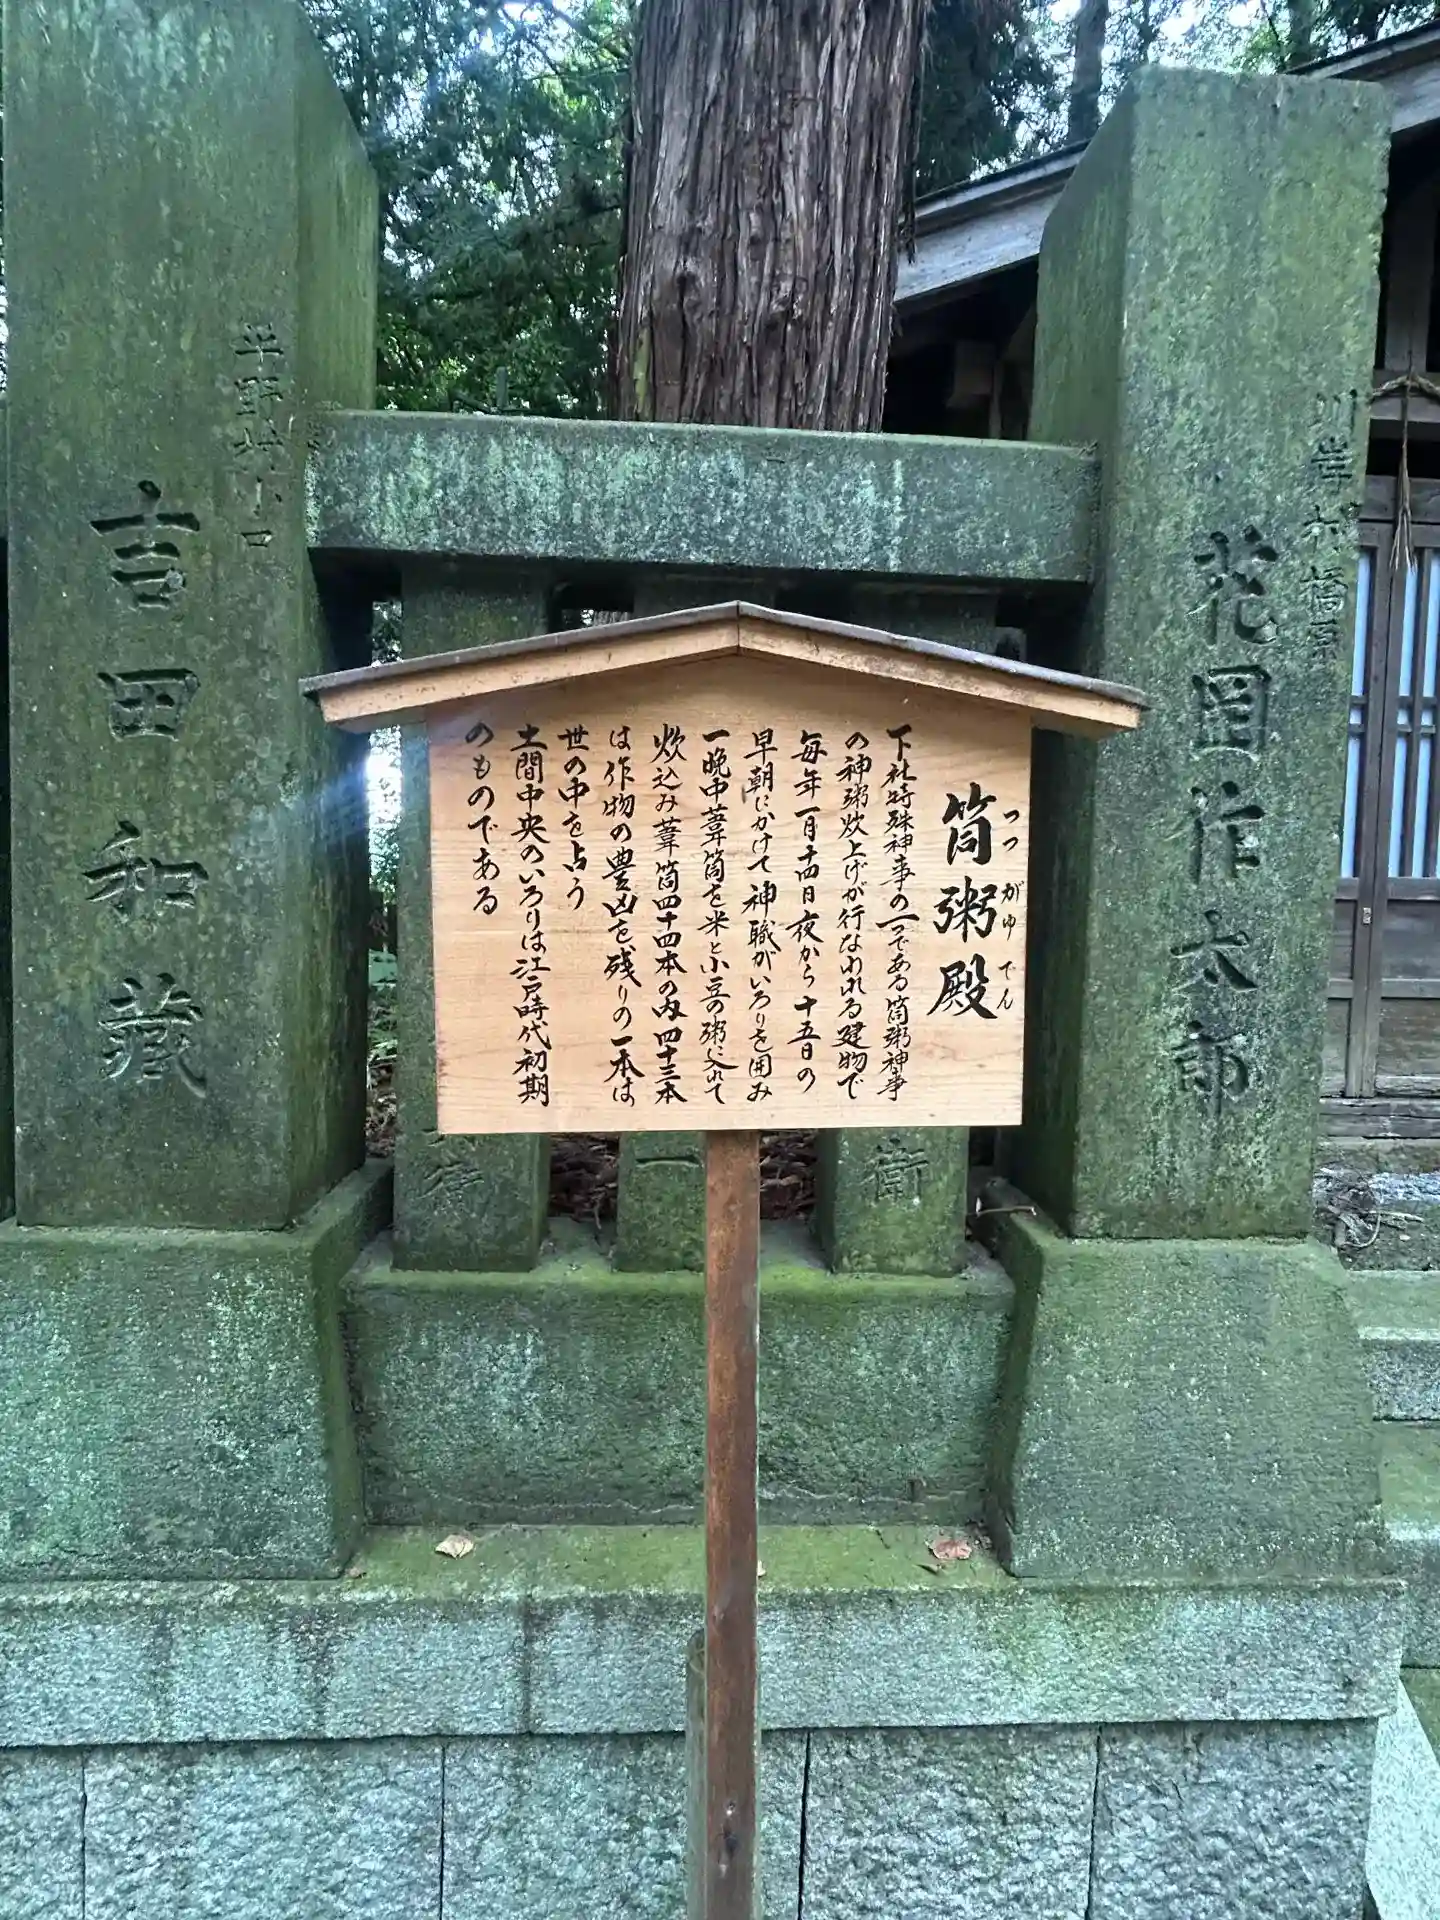 筒粥殿
つつ がゆ でん
下社特殊神事の一つである筒粥神事
の神粥炊上げが行なわれる建物で
毎年一月十四日夜から十五日の
早朝にかけて神職がいろりを囲み
一晩中葦筒を米と小豆の粥に入れて
炊込み葦筒四十四本の内四十三本
は作物の豊凶を残りの一本は
世の中を占う
土間中央のいろりは江戸時代初期
のものである
川岸村橋原
花岡作太郎
平野村小口
吉田和藏
衛
一
衛